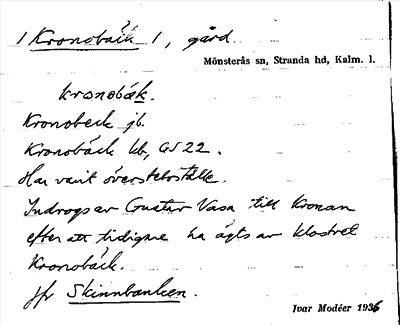 1 Kronobäck 1, gård
Mönsterås sn, Stranda hd, Kalm. l.
kronobäk.
Kronobeck jb.
Kronobäck kb, GS 22.
Har varit översteboställe.
Indrogs av Gustav Vasa till Kronan
efter att tidigare ha ägts av klostret
Kronobäck.
jfr Skinnbanken.
Ivar Modéer 1936